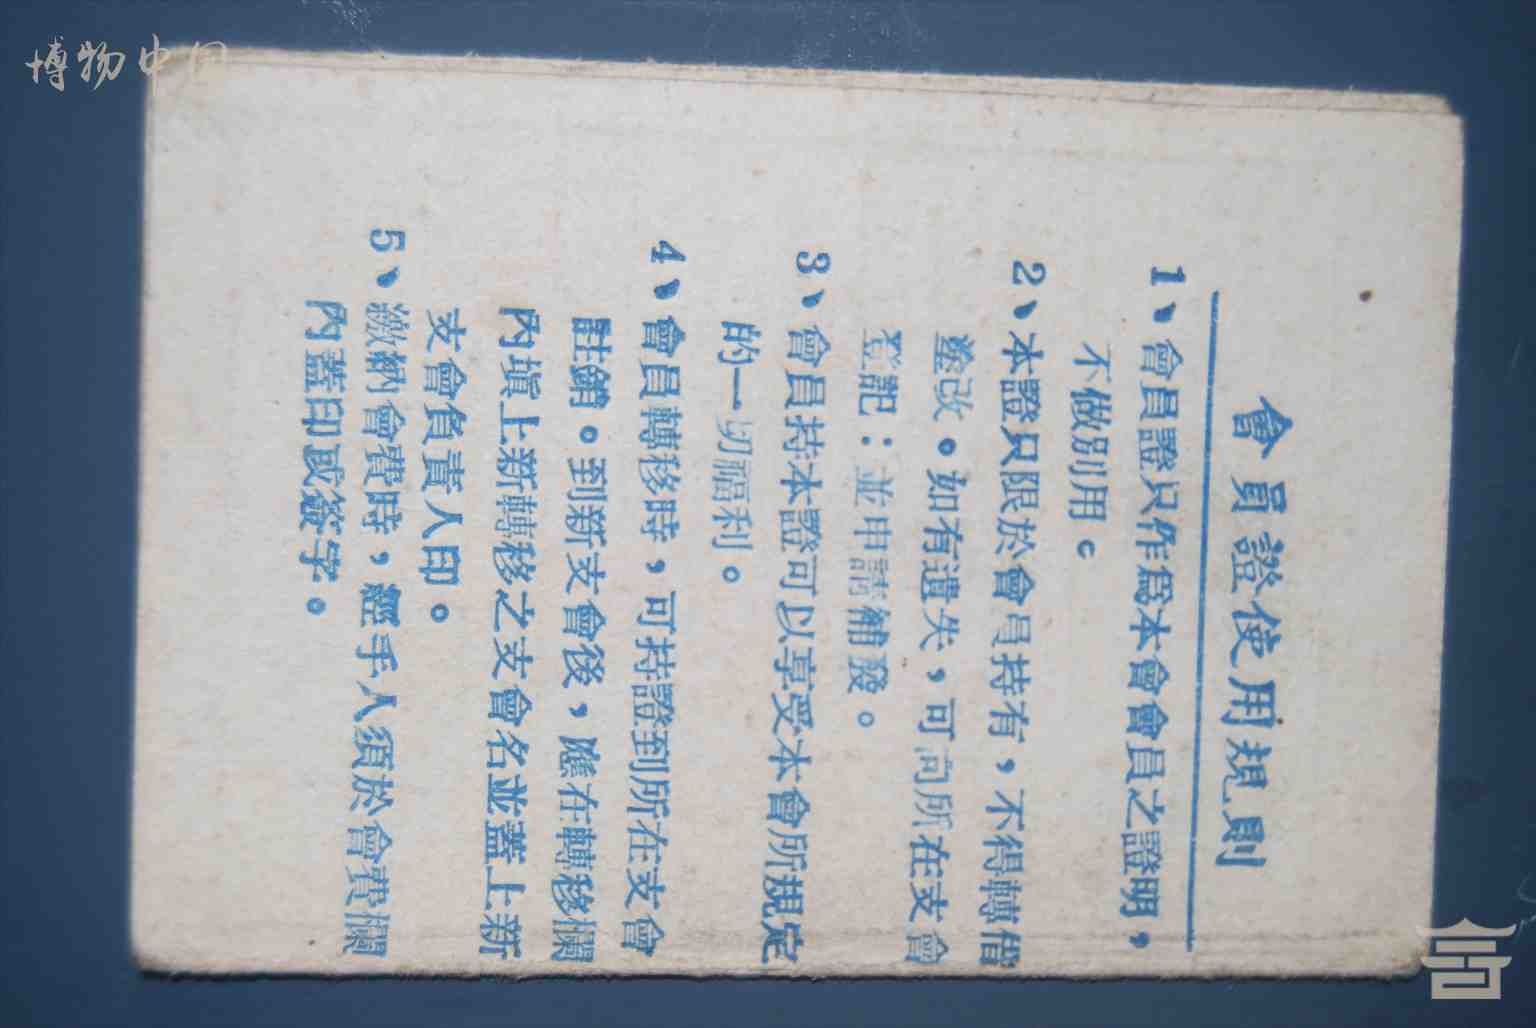 博物中国
會員證使用規則
1、會員證只作爲本會會員之證明，
不做別用。
2、本證只限於會員持有，不得轉借
塗改。如有遺失，可向所在支會
登記；並申請補發。
3、會員持本證可以享受本會所規定
的一切福利。
4、會員轉移時，可持證到所在支會
註銷。到新支會後，應在轉移欄
內塡上新轉移之支會名並蓋上新
支會負責人印。
5、繳納會費時，經手人須於會費欄
內蓋印或簽字。